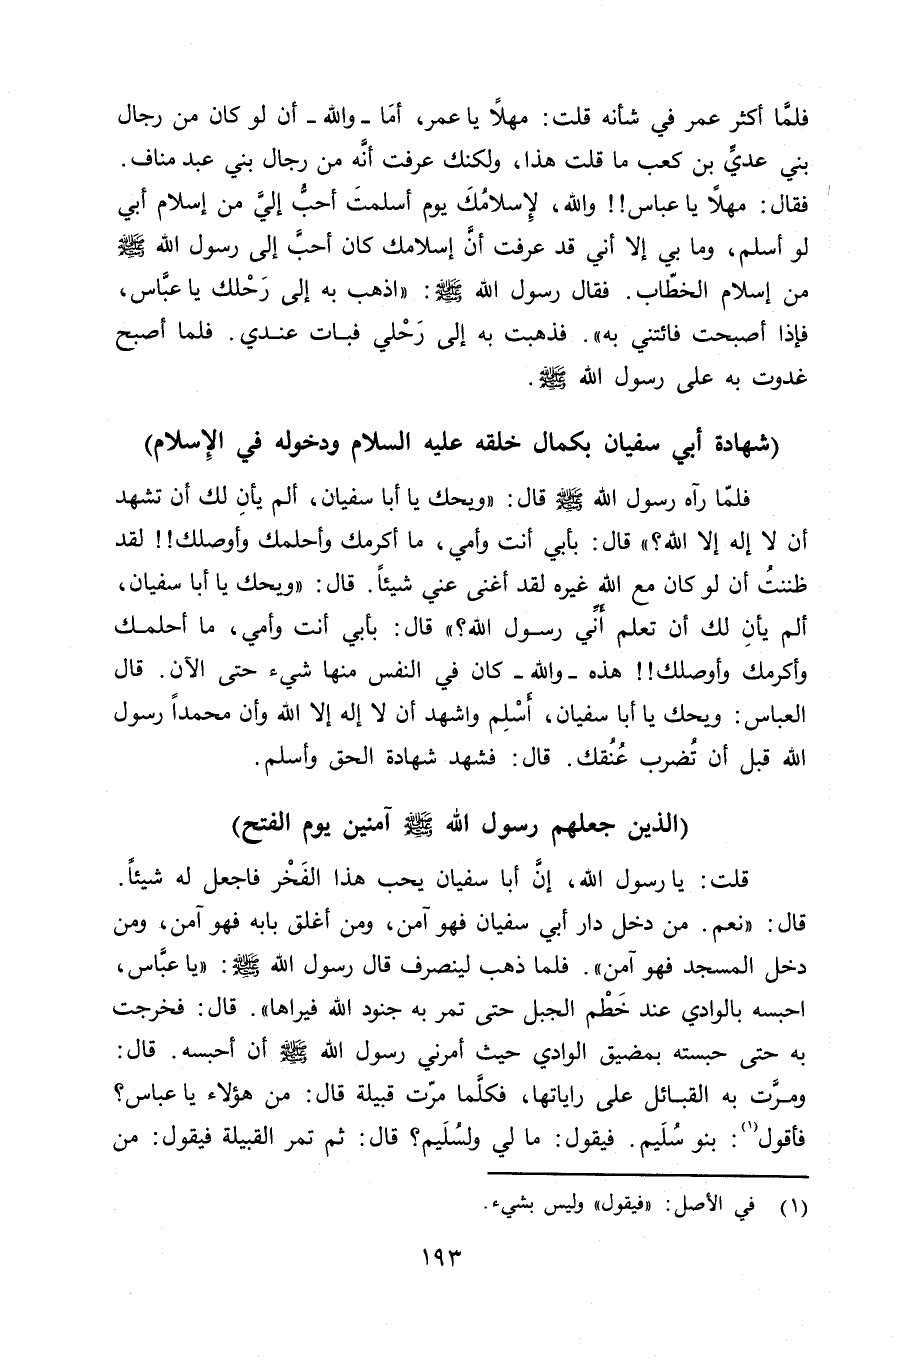 فلمَّا أكثر عمر في شأنه قلت: مهلًا يا عمر، أمَا ـ والله ـ أن لو كان من رجال
بني عديِّ بن كعب ما قلت هذا، ولكنك عرفت أنَّه من رجال بني عبد مناف.
فقال: مهلًا يا عباس!! والله، لإسلامُكَ يوم أسلمتَ أحبُّ إليَّ من إسلام أبي
لو أسلم، وما بي إلا أني قد عرفت أنَّ إسلامك كان أحبَّ إلى رسول الله ﷺ
من إسلام الخطّاب. فقال رسول الله ﷺ: «اذهب به إلى رَحْلك يا عبَّاس،
فإذا أصبحت فائتني به». فذهبت به إلى رَحْلي فبات عندي. فلما أصبح
غدوت به على رسول الله ﷺ.
(شهادة أبي سفيان بكمال خلقه عليه السلام ودخوله في الإسلام)
فلمّا رآه رسول الله ﷺ قال: «ويحك يا أبا سفيان، ألم يأنِ لك أن تشهد
أن لا إله إلا الله؟» قال: بأبي أنت وأمي، ما أكرمك وأحلمك وأوصلك!! لقد
ظننتُ أن لو كان مع الله غيره لقد أغنى عني شيئاً. قال: «ويحك يا أبا سفيان،
ألم يأنِ لك أن تعلم أنِّي رسول الله؟» قال: بأبي أنت وأمي، ما أحلمك
وأكرمك وأوصلك!! هذه ـ والله ـ كان في النفس منها شيء حتى الآن. قال
العباس: ويحك يا أبا سفيان، أَسْلِم واشهد أن لا إله إلا الله وأن محمداً رسول
الله قبل أن تُضرب عُنُقك. قال: فشهد شهادة الحق وأسلم.
(الذين جعلهم رسول الله ﷺ آمنين يوم الفتح)
قلت: يا رسول الله، إنَّ أبا سفيان يحب هذا الفَخْر فاجعل له شيئاً.
قال: «نعم. من دخل دار أبي سفيان فهو آمن، ومن أغلق بابه فهو آمن، ومن
دخل المسجد فهو آمن». فلما ذهب لينصرف قال رسول الله ﷺ: «يا عبَّاس،
احبسه بالوادي عند خَطْم الجبل حتى تمر به جنود الله فيراها». قال: فخرجت
به حتى حبسته بمضيق الوادي حيث أمرني رسول الله ﷺ أن أحبسه. قال:
ومرَّت به القبائل على راياتها، فكلَّما مرّت قبيلة قال: من هؤلاء يا عباس؟
فأقول(١): بنو سُلَيم. فيقول: ما لي ولسُلَيم؟ قال: ثم تمر القبيلة فيقول: من
(١) في الأصل: «فيقول» وليس بشيء.
١٩٣